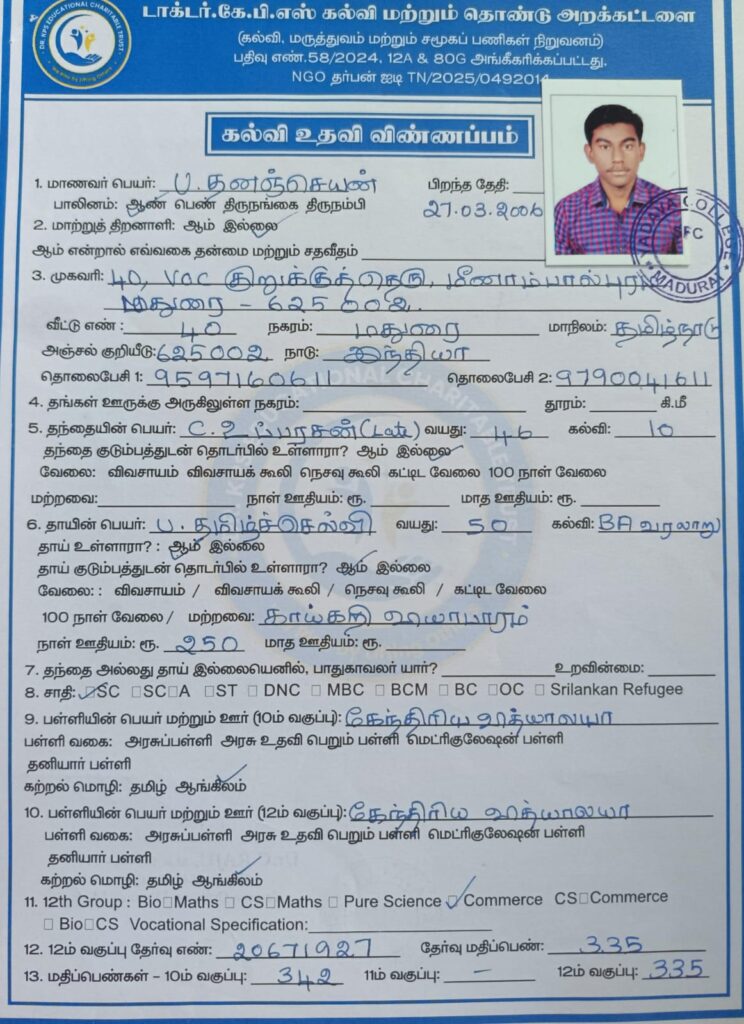 DR. KPS EDUCATIONAL CHARITABLE TRUST
டாக்டர்.கே.பி.எஸ் கல்வி மற்றும் தொண்டு அறக்கட்டளை
(கல்வி, மருத்துவம் மற்றும் சமூகப் பணிகள் நிறுவனம்)
பதிவு எண்.58/2024, 12A & 80G அங்கீகரிக்கப்பட்டது.
NGO தர்பன் ஐடி TN/2025/0492014
கல்வி உதவி விண்ணப்பம்
1. மாணவர் பெயர்: ப. தனஞ்செயன் பிறந்த தேதி:
பாலினம்: ஆண் பெண் திருநங்கை திருநம்பி 27.03.2006
2. மாற்றுத் திறனாளி: ஆம் இல்லை
ஆம் என்றால் எவ்வகை தன்மை மற்றும் சதவீதம்
COLLEGE SFC MADURAI
3. முகவரி: 40, VOC குறுக்குத்தெரு, மீனாம்பால்புரம்
மதுரை - 625 002.
வீட்டு எண் : 40 நகரம்: மதுரை மாநிலம்: தமிழ்நாடு
அஞ்சல் குறியீடு: 625002 நாடு: இந்தியா
தொலைபேசி 1: 9597160611 தொலைபேசி 2: 9790041611
4. தங்கள் ஊருக்கு அருகிலுள்ள நகரம்: தூரம்: கி.மீ
5. தந்தையின் பெயர்: C. (Late) வயது: 46 கல்வி: 10
தந்தை குடும்பத்துடன் தொடர்பில் உள்ளாரா? ஆம் இல்லை
வேலை: விவசாயம் விவசாயக் கூலி நெசவு கூலி கட்டிட வேலை 100 நாள் வேலை
மற்றவை: நாள் ஊதியம்: ரூ. மாத ஊதியம்: ரூ.
6. தாயின் பெயர்: ப. தமிழ்ச்செல்வி வயது: 50 கல்வி: BA வரலாறு
தாய் உள்ளாரா? : ஆம் இல்லை
தாய் குடும்பத்துடன் தொடர்பில் உள்ளாரா? ஆம் இல்லை
வேலை: : விவசாயம் / விவசாயக் கூலி / நெசவு கூலி / கட்டிட வேலை
100 நாள் வேலை / மற்றவை: காய்கறி வியாபாரம்
நாள் ஊதியம்: ரூ. 250 மாத ஊதியம்: ரூ.
7. தந்தை அல்லது தாய் இல்லையெனில், பாதுகாவலர் யார்? உறவின்மை:
8. சாதி: □SC □SC□A □ST □ DNC □ MBC □ BCM □ BC □OC □ Srilankan Refugee
9. பள்ளியின் பெயர் மற்றும் ஊர் (10ம் வகுப்பு): கேந்திரிய வித்யாலயா
பள்ளி வகை: அரசுப்பள்ளி அரசு உதவி பெறும் பள்ளி மெட்ரிகுலேஷன் பள்ளி
தனியார் பள்ளி
கற்றல் மொழி: தமிழ் ஆங்கிலம்
10. பள்ளியின் பெயர் மற்றும் ஊர் (12ம் வகுப்பு): கேந்திரிய வித்யாலயா
பள்ளி வகை: அரசுப்பள்ளி அரசு உதவி பெறும் பள்ளி மெட்ரிகுலேஷன் பள்ளி
தனியார் பள்ளி
கற்றல் மொழி: தமிழ் ஆங்கிலம்
11. 12th Group : Bio□Maths □ CS□Maths □ Pure Science □ Commerce CS□Commerce
□ Bio□CS Vocational Specification:
12. 12ம் வகுப்பு தேர்வு எண்: 20671927 தேர்வு மதிப்பெண்: 335
13. மதிப்பெண்கள் - 10ம் வகுப்பு: 342 11ம் வகுப்பு: - 12ம் வகுப்பு: 335